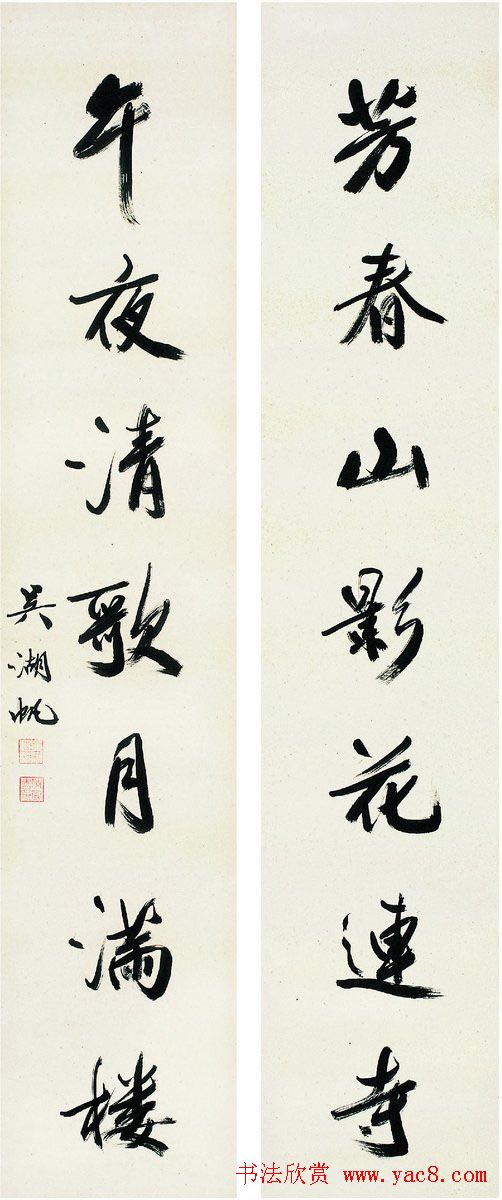 芳春山影花連寺
午夜清歌月满楼
吴湖帆
书法欣赏 www.yac8.com